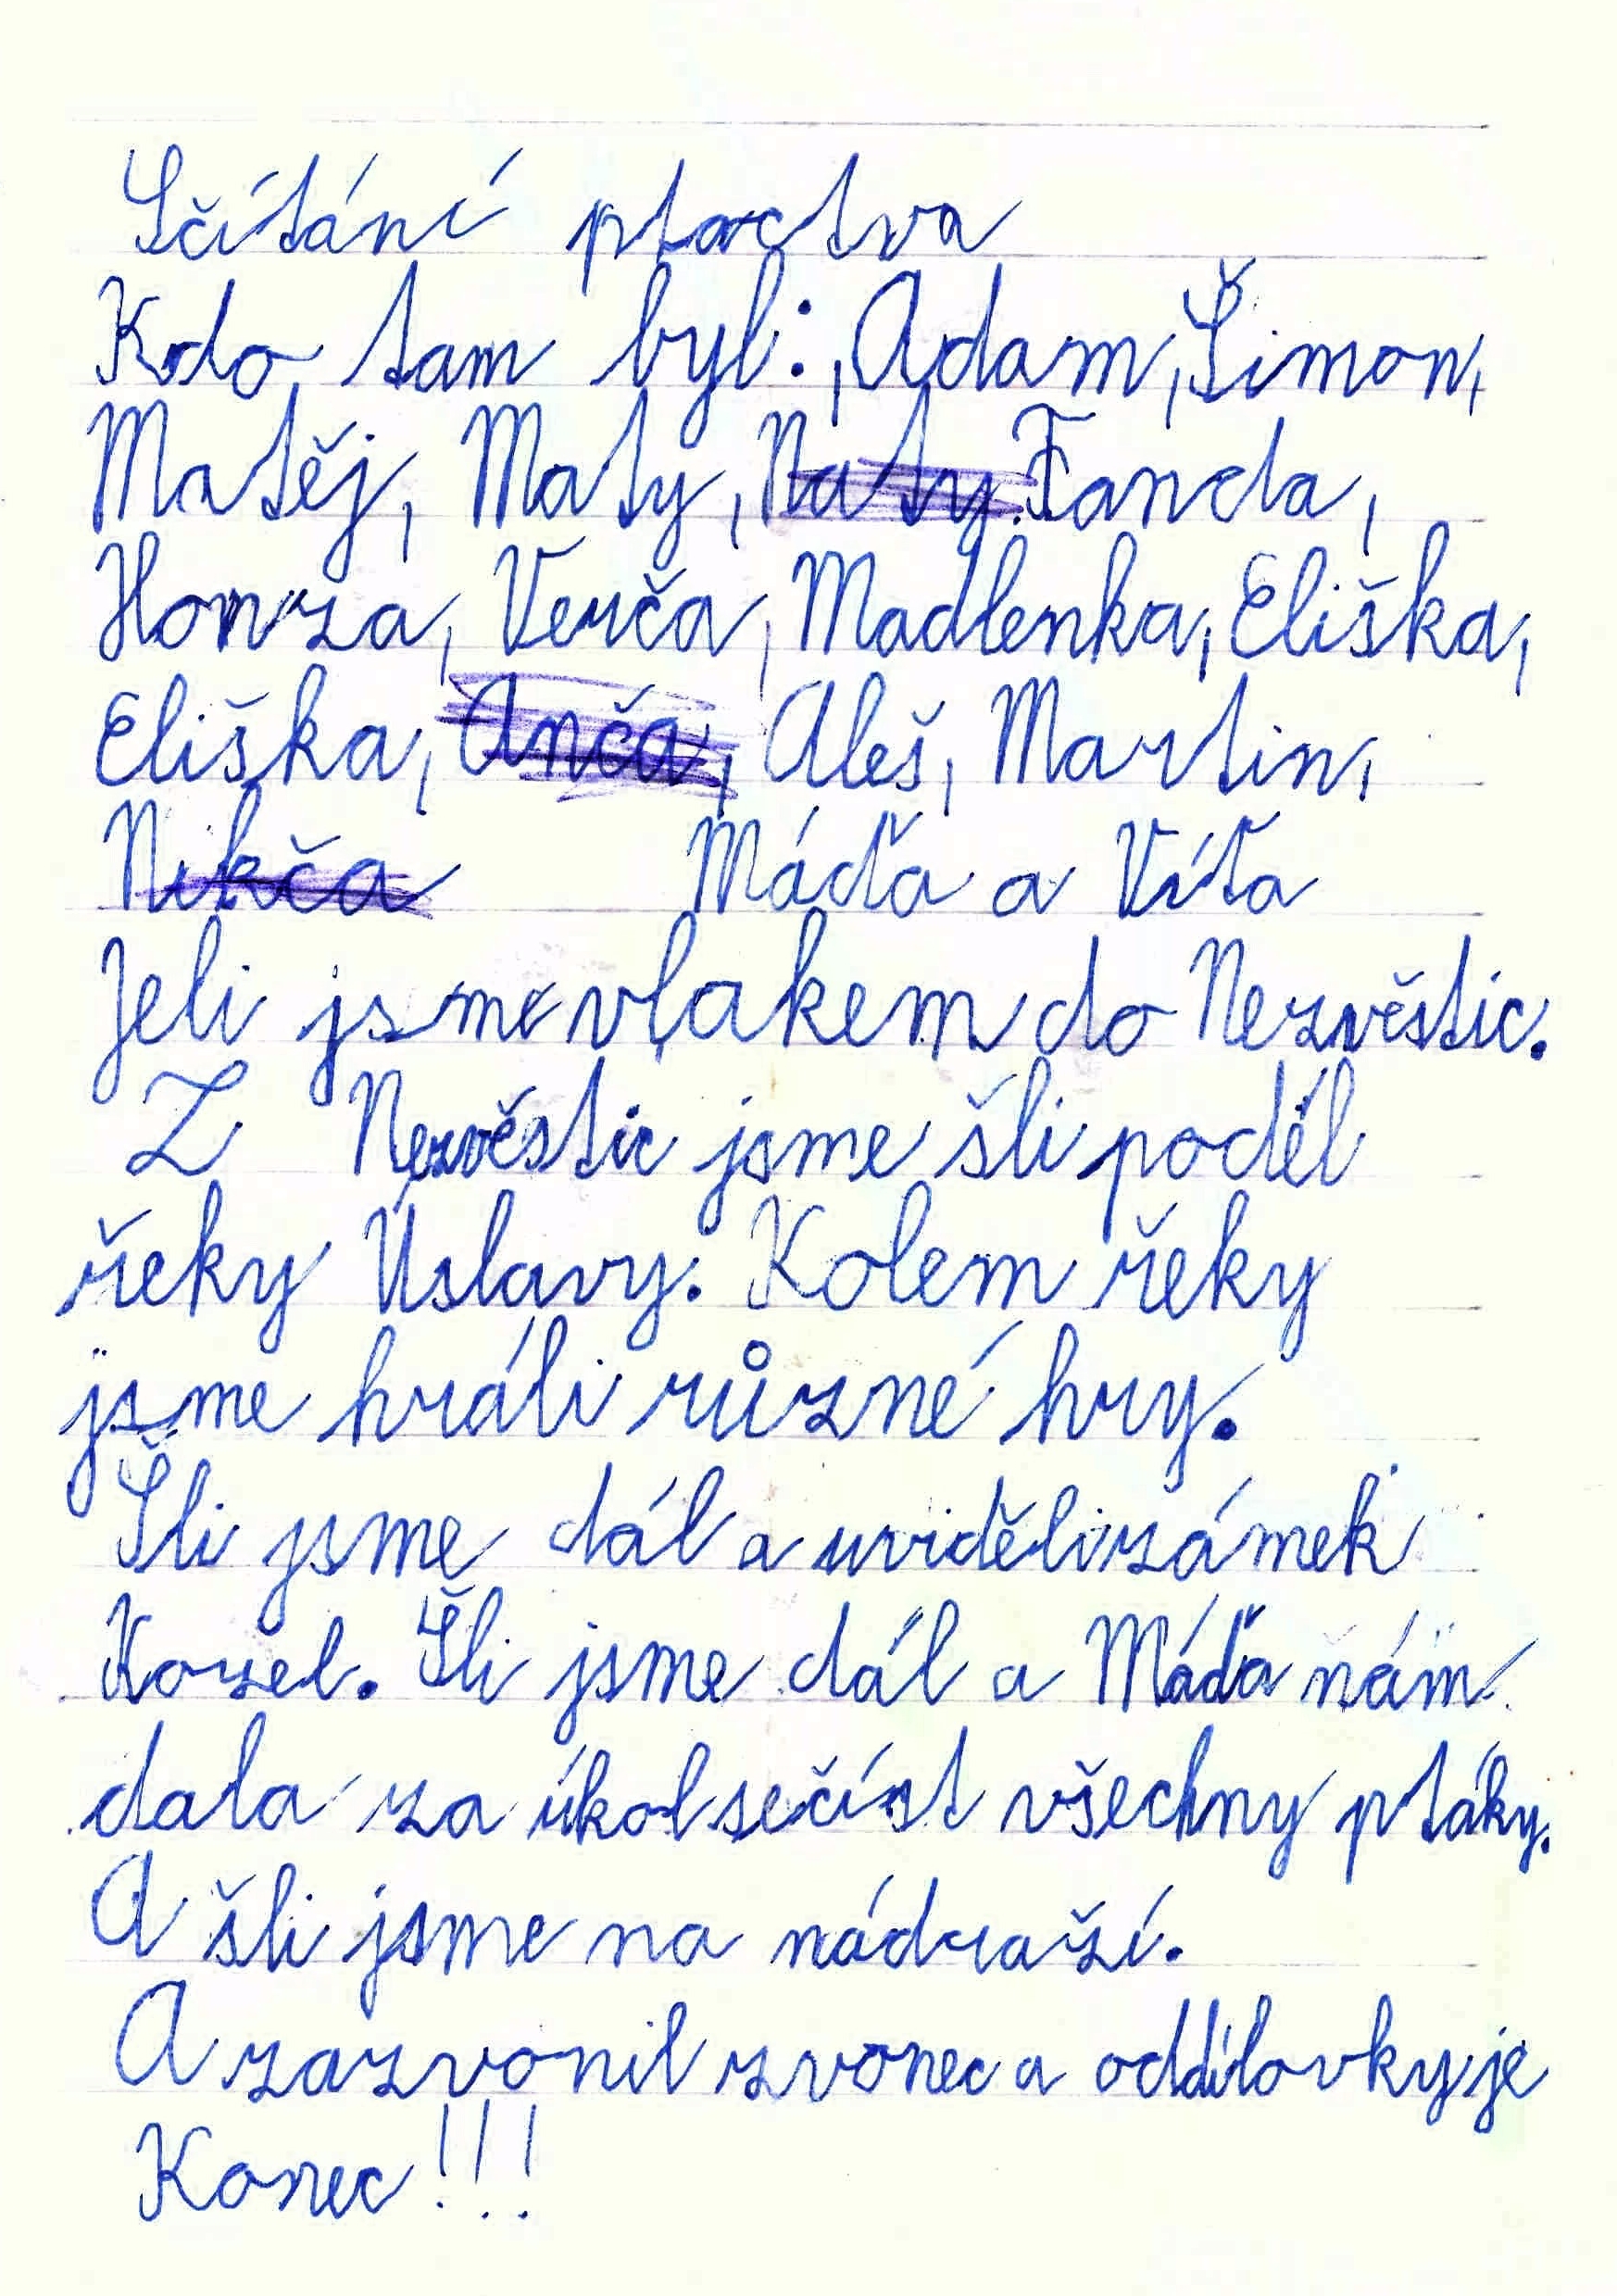 Sčítání ptactva
Kdo tam byl:, Adam, Šimon,
Matěj, Maty, Naty. Fanda,
Honza, Verča, Madlenka, Eliška,
Eliška, Anča, Aleš, Martin,
Nikča Máďa a Víťa
Jeli jsme vlakem do Nezvěstic.
Z Nezvěstic jsme šli podél
řeky Úslavy. Kolem řeky
jsme hráli různé hry.
Šli jsme dál a uviděli zámek
Kozel. Šli jsme dál a Máďa nám
dala za úkol sečíst všechny ptáky.
A šli jsme na nádraží.
A zazvonil zvonec a oddílovky je
Konec!!!